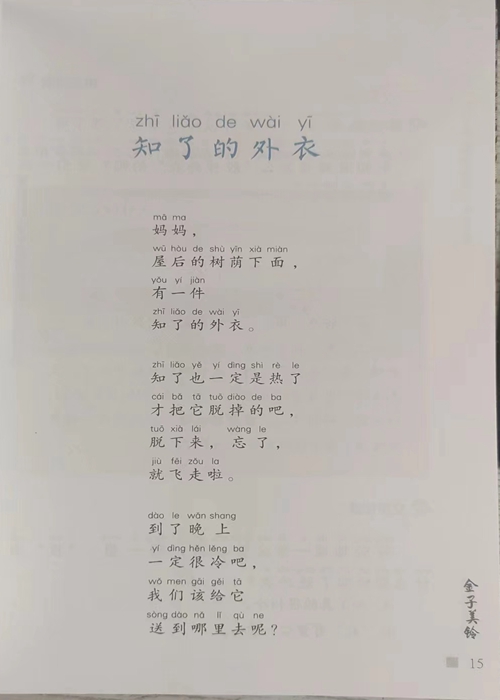 zhī liǎo de wài yī
知了的外衣
mā ma
妈妈，
wū hòu de shù yīn xià miàn
屋后的树荫下面，
yǒu yí jiàn
有一件
zhī liǎo de wài yī
知了的外衣。
zhī liǎo yě yí dìng shì rè le
知了也一定是热了
cái bǎ tā tuō diào de ba
才把它脱掉的吧，
tuō xià lái wàng le
脱下来，忘了，
jiù fēi zǒu la
就飞走啦。
dào le wǎn shang
到了晚上
yí dìng hěn lěng ba
一定很冷吧，
wǒ men gāi gěi tā
我们该给它
sòng dào nǎ lǐ qù ne
送到哪里去呢？
金子美铃
15